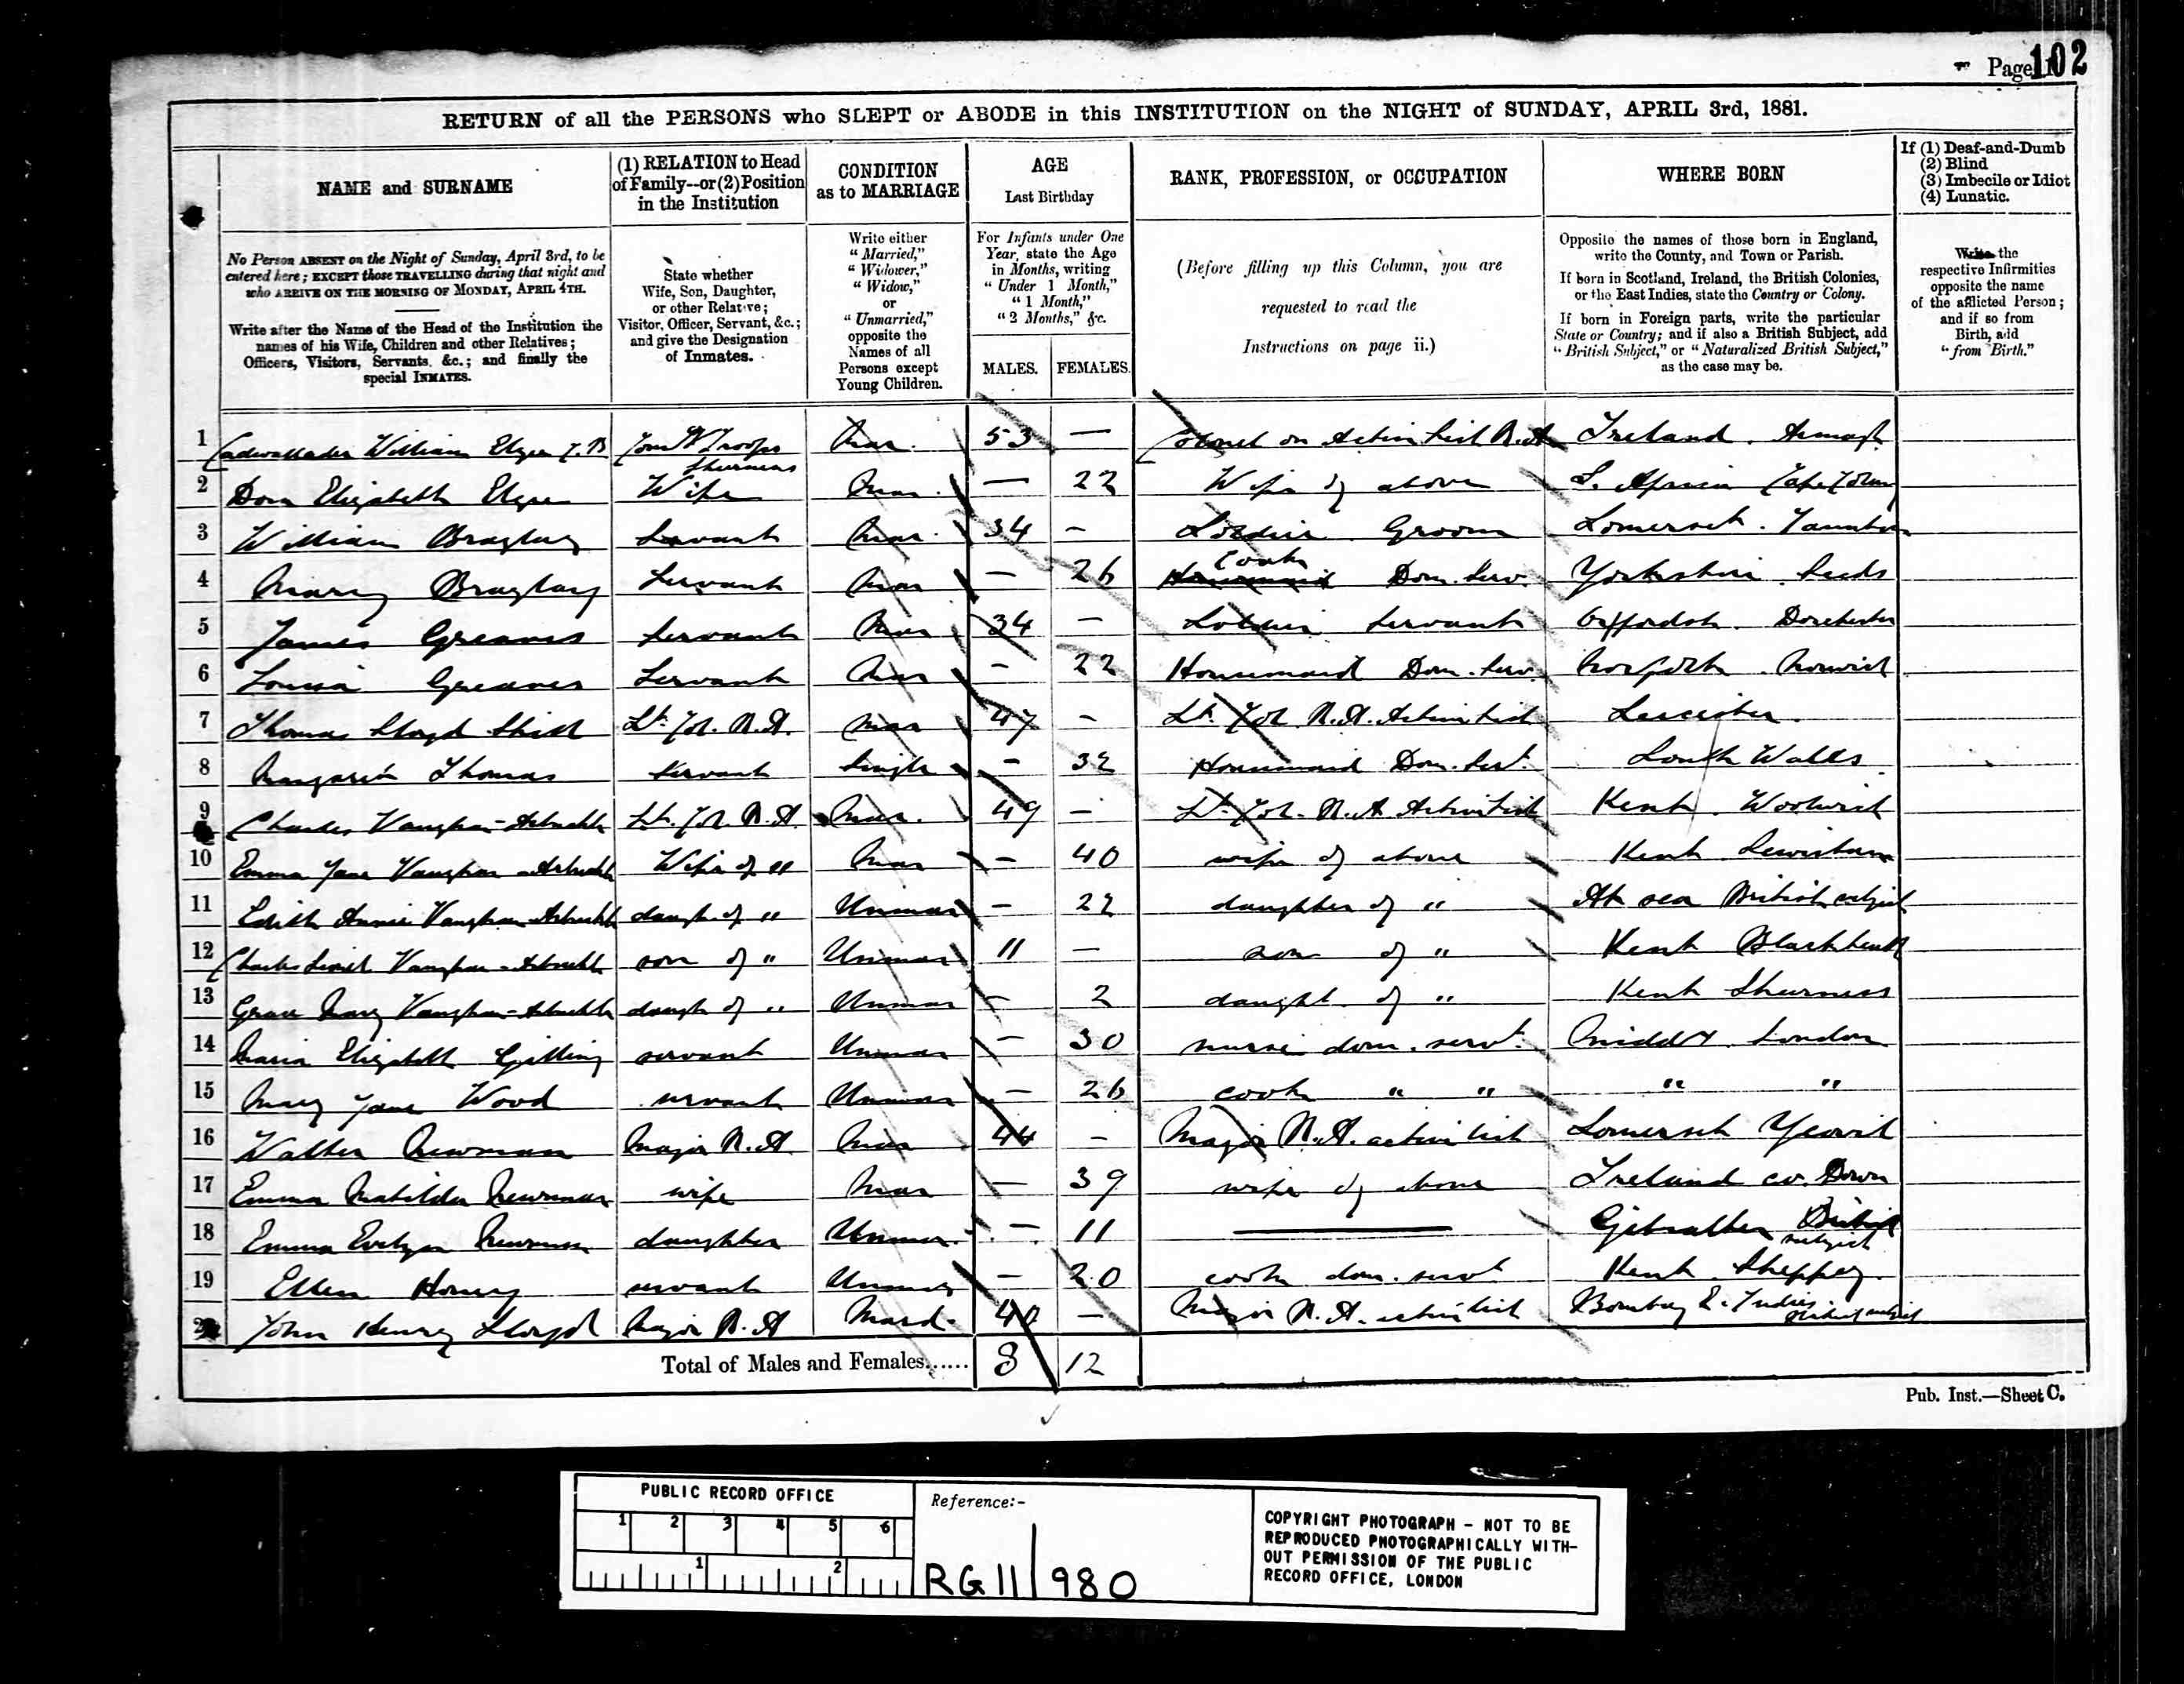 Page 102
RETURN of all the PERSONS who SLEPT or ABODE in this INSTITUTION on the NIGHT of SUNDAY, APRIL 3rd, 1881.
NAME and SURNAME
No Person ABSENT on the Night of Sunday, April 3rd, to be
entered here; EXCEPT those TRAVELLING during that night and
who ARRIVE ON THE MORNING OF MONDAY, APRIL 4TH.
Write after the Name of the Head of the Institution the
names of his Wife, Children and other Relatives;
Officers, Visitors, Servants, &c.; and finally the
special INMATES.
(1) RELATION to Head
of Family--or (2) Position
in the Institution
State whether
Wife, Son, Daughter,
or other Relative;
Visitor, Officer, Servant, &c.;
and give the Designation
of Inmates.
CONDITION
as to MARRIAGE
Write either
"Married,"
"Widower,"
"Widow,"
or
"Unmarried,"
opposite the
Names of all
Persons except
Young Children.
AGE
Last Birthday
For Infants under One
Year, state the Age
in Months, writing
"Under 1 Month,"
"1 Month,"
"2 Months," &c.
MALES. FEMALES.
RANK, PROFESSION, or OCCUPATION
(Before filling up this Column, you are
requested to read the
Instructions on page ii.)
WHERE BORN
Opposite the names of those born in England,
write the County, and Town or Parish.
If born in Scotland, Ireland, the British Colonies,
or the East Indies, state the Country or Colony.
If born in Foreign parts, write the particular
State or Country; and if also a British Subject, add
"British Subject," or "Naturalized British Subject,"
as the case may be.
If (1) Deaf-and-Dumb
(2) Blind
(3) Imbecile or Idiot
(4) Lunatic.
Write the
respective Infirmities
opposite the name
of the afflicted Person;
and if so from
Birth, add
"from Birth."
1 Cadwallader William Elgee C.B. Com g Troops Sheerness Mar. 53 — Colonel on Active List R.A Ireland. Armagh
2 Dora Elizabeth Elgee Wife Mar. — 22 Wife of above S. Africa Cape Colony
3 William Servant Mar. 34 - Soldier Groom Somerset. Taunton
4 Mary Servant Mar — 26 Housemaid Cook Dom. Serv. Yorkshire. Leeds
5 James Greaves Servant Mar 34 - Soldier Servant Oxfordsh. Dorchester
6 Louisa Greaves Servant Mar - 22 Housemaid Dom. Serv. Norfolk. Norwich
7 Thomas Lloyd Lt. Col. R.A. Mar 47 - Lt. Col. R.A. Active List Leicester.
8 Margaret Thomas Servant Single - 32 Housemaid Dom. Servt. South Wales
9 Charles Vaughan-Arbuckle Lt. Col. R.A. Mar. 49 - Lt. Col. R.A Active List Kent. Woolwich
10 Emma Jane Vaughan-Arbuckle Wife of " Mar - 40 wife of above Kent Lewisham
11 Edith Annie Vaughan-Arbuckle daugh. of " Unmar - 22 daughter of " At sea British subject
12 Charles Lionel Vaughan-Arbuckle son of " Unmar 11 — son of " Kent Blackheath
13 Grace Mary Vaughan-Arbuckle daugh of " Unmar - 2 daught. of " Kent Sheerness
14 Maria Elizabeth Gilling servant Unmar - 30 nurse dom. servt. Middx. London
15 Mary Jane Wood servant Unmar — 26 cook " " " "
16 Walter Newman Major R.A. Mar 44 - Major R.A. active list Somerset Yeovil
17 Emma Matilda Newman wife Mar — 39 wife of above Ireland co. Down
18 Emma Evelyn Newman daughter Unmar. — 11 — Gibraltar British subject
19 Ellen servant Unmar — 20 cook dom. servt Kent. Sheppey.
20 John Henry Lloyd Major R.A Mard. 40 — Major R.A. active list Bombay E. Indies British subject
Total of Males and Females...... 8 12
Pub. Inst.—Sheet C.
PUBLIC RECORD OFFICE
1 2 3 4 5 6
1 2
Reference:-
RG 11/980
COPYRIGHT PHOTOGRAPH - NOT TO BE
REPRODUCED PHOTOGRAPHICALLY WITH-
OUT PERMISSION OF THE PUBLIC
RECORD OFFICE, LONDON